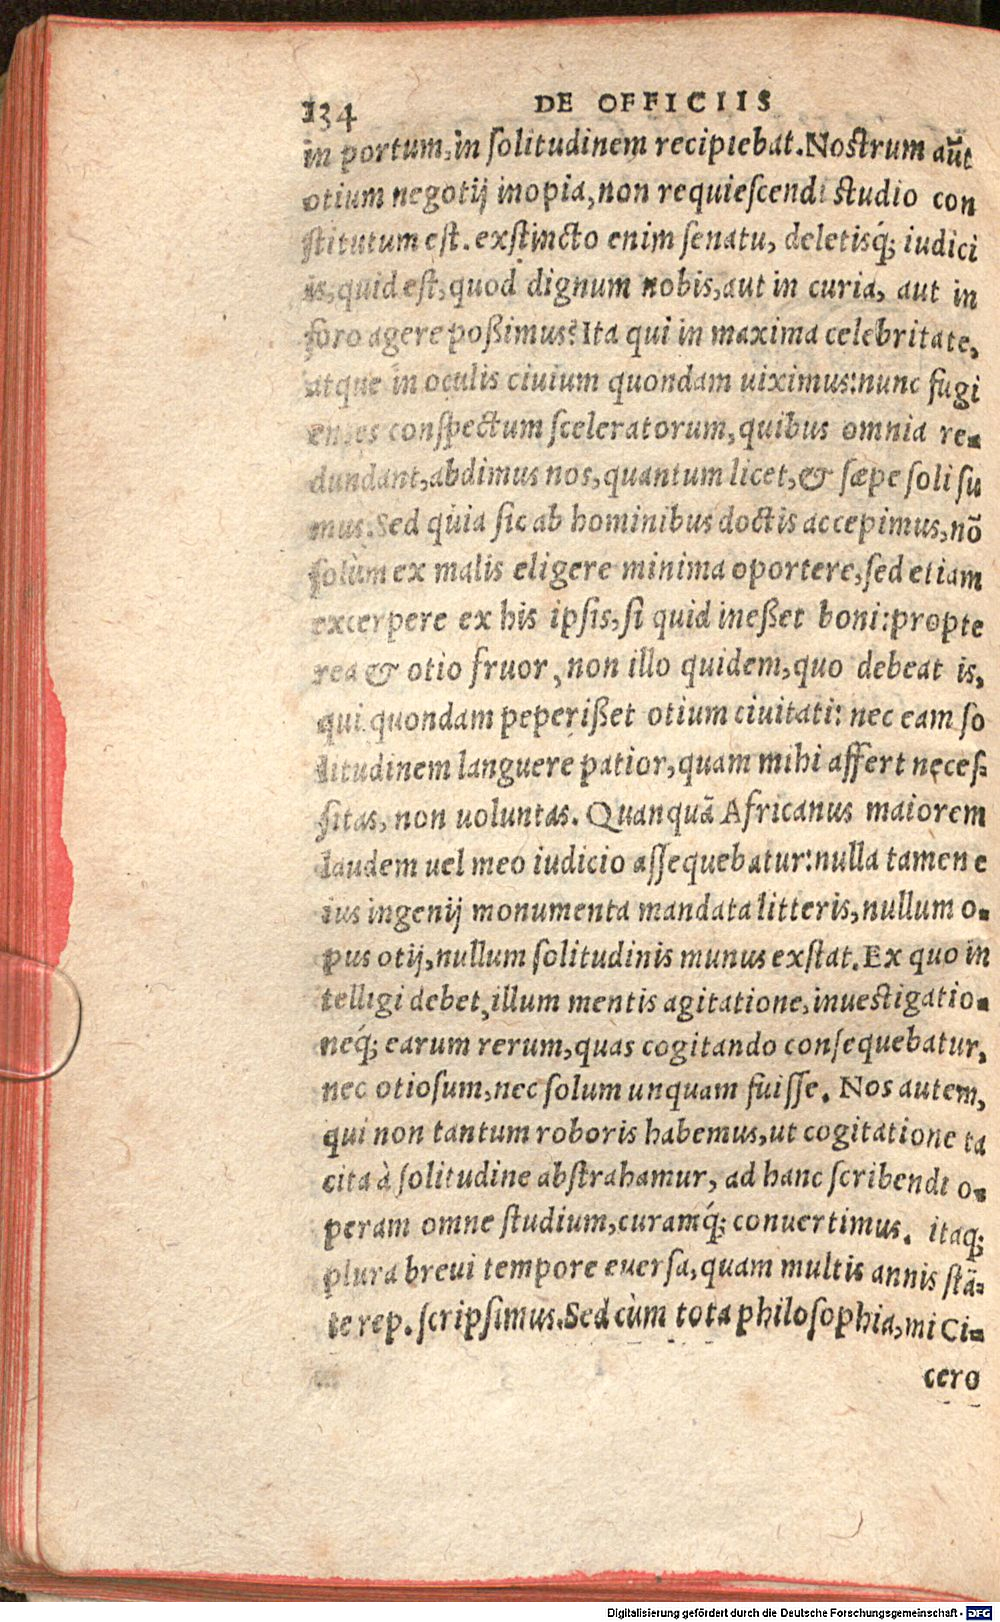 134 DE OFFICIIS
in portum, in ſolitudinem recipiebat. Noſtrum aūt
otium negotij inopia, non requieſcendi ſtudio con
ſtitutum eſt. exſtincto enim ſenatu, deletisq́; iudici
is, quid eſt, quod dignum nobis, aut in curia, aut in
foro agere poßimus? Ita qui in maxima celebritate,
atque in oculis ciuium quondam uiximus: nunc fugi
entes conſpectum ſceleratorum, quibus omnia re-
dundant, abdimus nos, quantum licet, & ſæpe ſoli ſu
mus. Sed quia ſic ab hominibus doctis accepimus, nō
ſolùm ex malis eligere minima oportere, ſed etiam
excerpere ex his ipſis, ſi quid ineßet boni: propte
rea & otio fruor, non illo quidem, quo debeat is,
qui quondam peperißet otium ciuitati: nec eam ſo
litudinem languere patior, quam mihi affert neceſ-
ſitas, non uoluntas. Quanquā Africanus maiorem
laudem uel meo iudicio aſſequebatur: nulla tamen e
ius ingenij monumenta mandata litteris, nullum o-
pus otij, nullum ſolitudinis munus exſtat. Ex quo in
telligi debet, illum mentis agitatione, inueſtigatio-
neq́; earum rerum, quas cogitando conſequebatur,
nec otioſum, nec ſolum unquam fuiſſe. Nos autem,
qui non tantum roboris habemus, ut cogitatione ta
cita à ſolitudine abſtrahamur, ad hanc ſcribendi o-
peram omne ſtudium, curamq́; conuertimus. itaq;
plura breui tempore euerſa, quam multis annis ſtā-
te rep. ſcripſimus. Sed cùm tota philoſophia, mi Ci-
cero
Digitalisierung gefördert durch die Deutsche Forschungsgemeinschaft - DFG